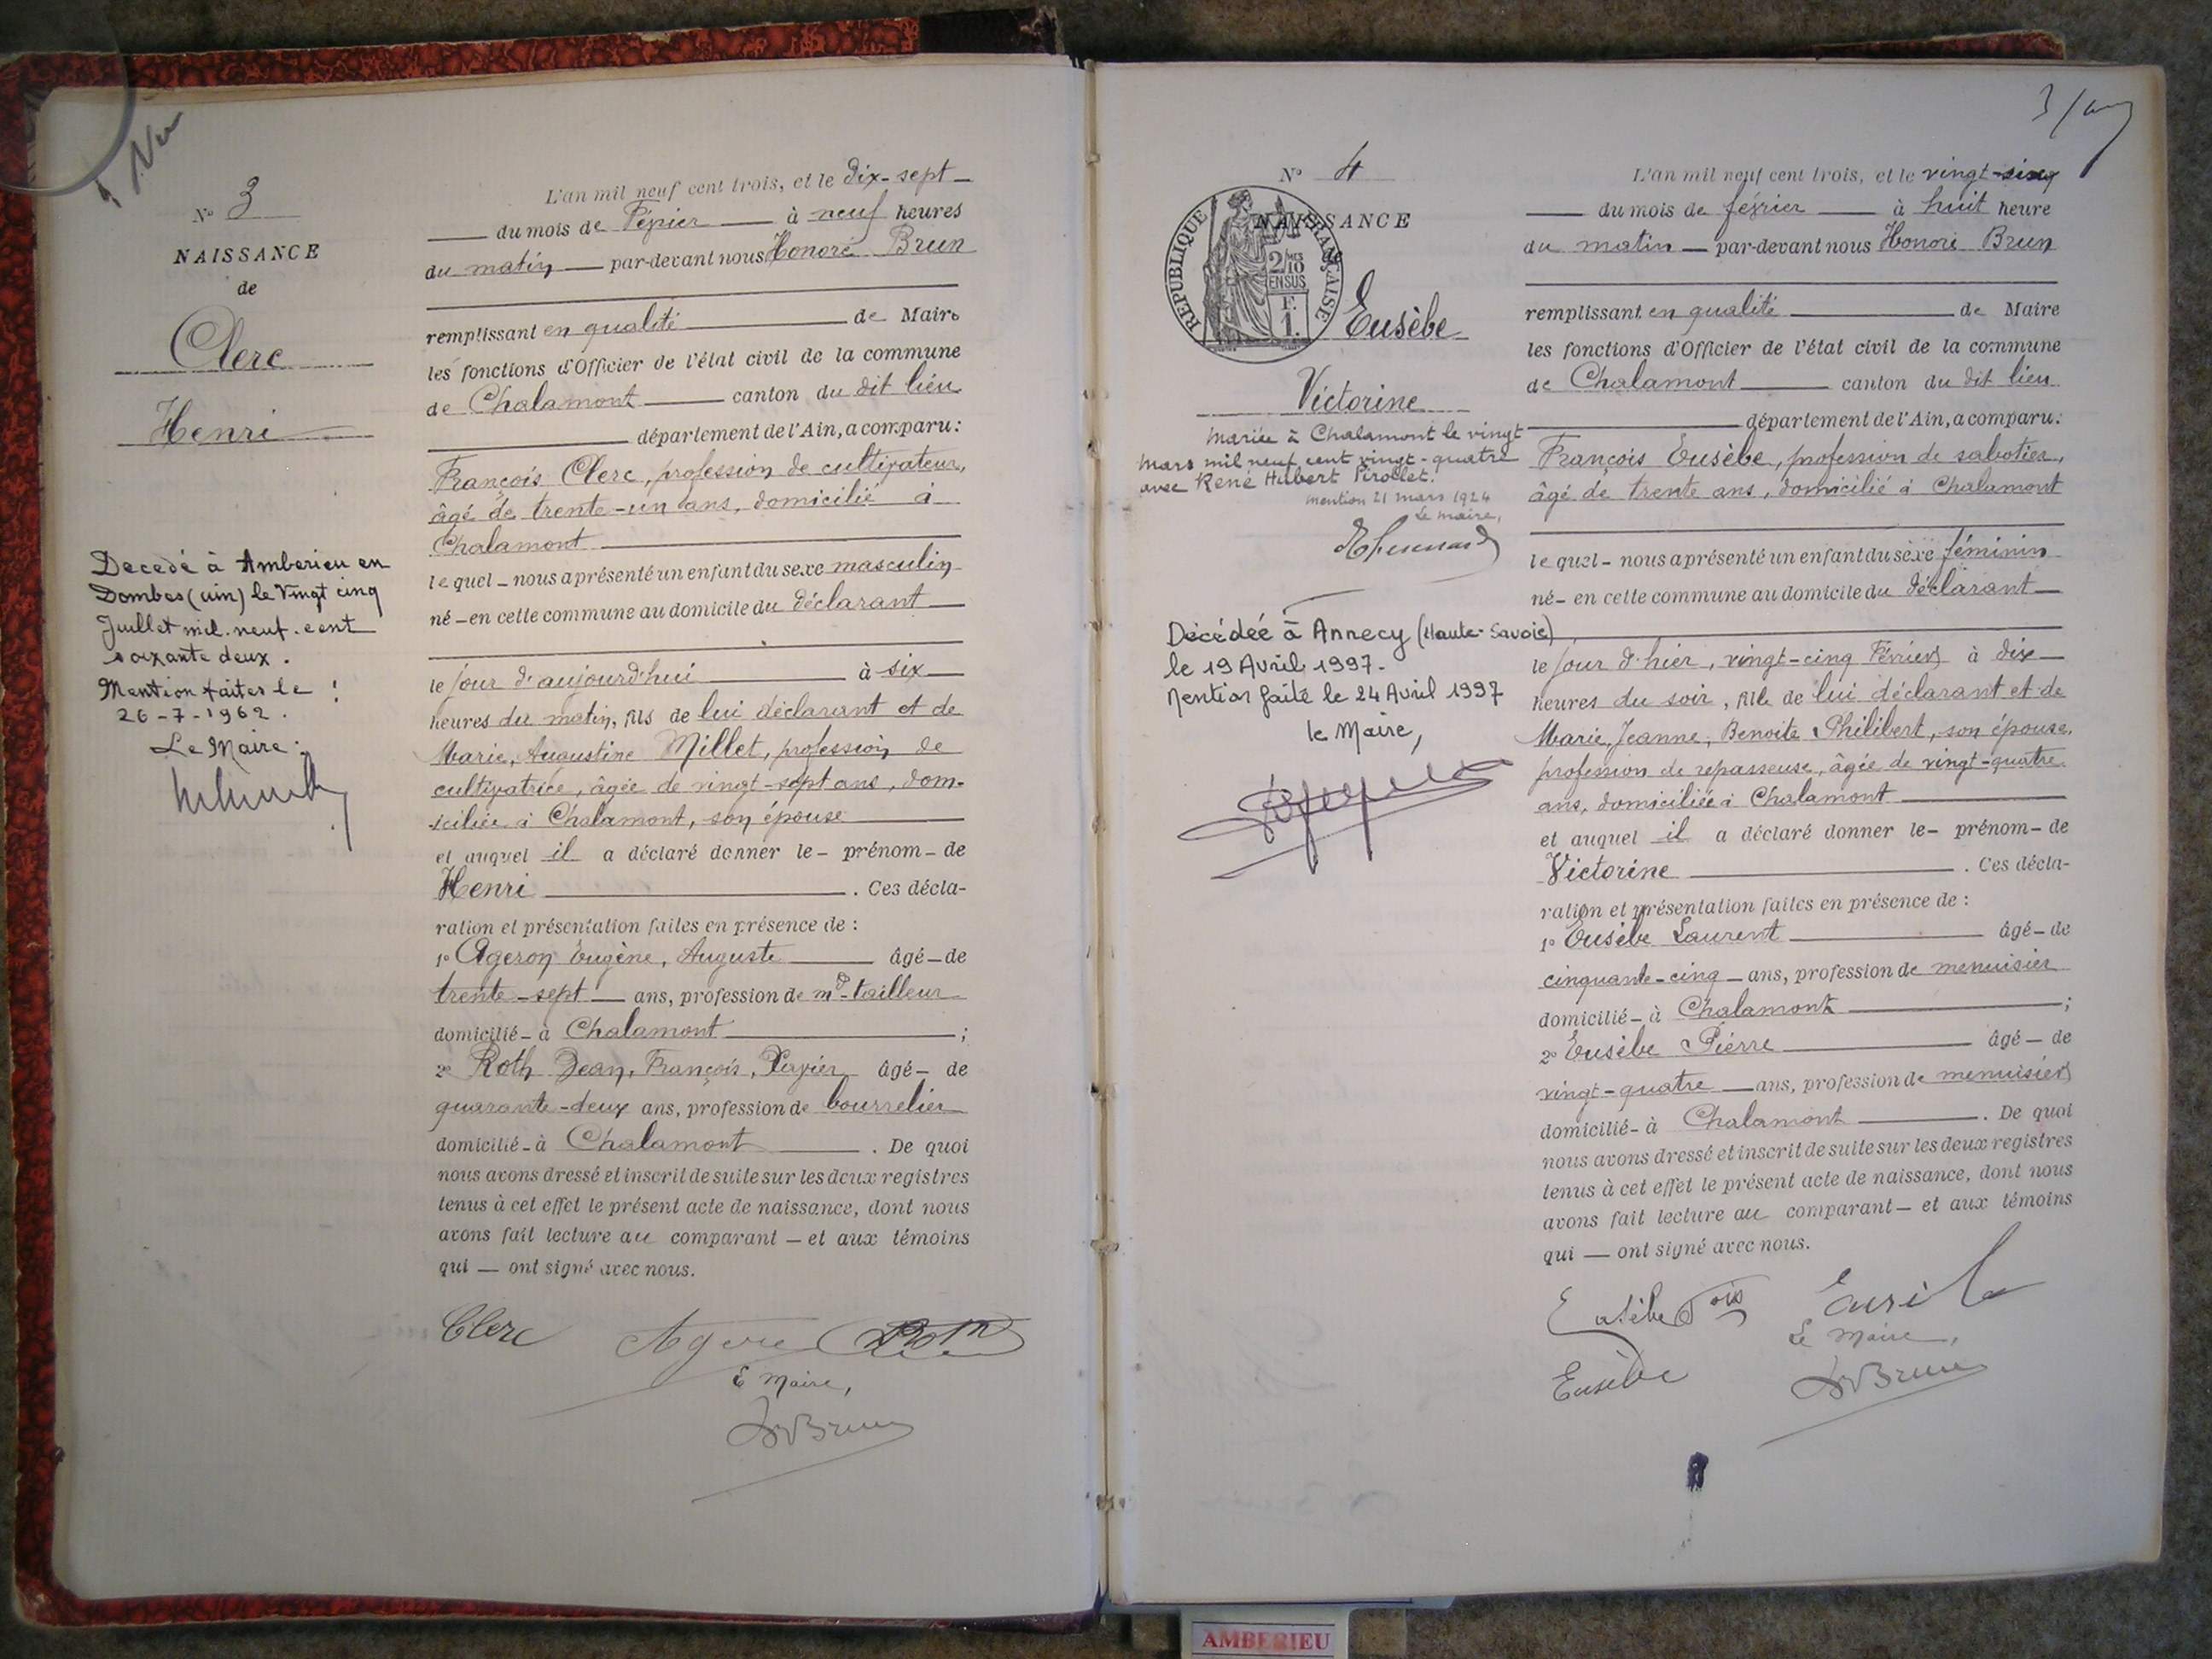 N° 3
NAISSANCE
de
Clerc
Henri
Decedé à Amberieu en
Dombes (ain) le Vingt cinq
Juillet mil. neuf. cent
soixante deux.
Mention faites le :
26-7-1962.
Le Maire:
L'an mil neuf cent trois, et le dix-sept
du mois de Février à neuf heures
du matin par-devant nous Honoré Brun
remplissant en qualité de Maire
les fonctions d'Officier de l'état civil de la commune
de Chalamont canton du dit lieu
département de l'Ain, a comparu:
François Clerc, profession de cultivateur,
âgé de trente-un ans, domicilié à
Chalamont
lequel nous a présenté un enfant du sexe masculin
né en cette commune au domicile du déclarant
le jour d'aujourd'hui à six
heures du matin, fils de lui déclarant et de
Marie, Augustine Millet, profession de
cultivatrice, âgée de vingt-sept ans, dom-
iciliée à Chalamont, son épouse
et auquel il a déclaré donner le prénom de
Henri . Ces décla-
ration et présentation faites en présence de :
1° Ageron Eugène, Auguste âgé de
trente-sept ans, profession de md-tailleur
domicilié à Chalamont ;
2° Roth Jean, François, Xavier âgé de
quarante-deux ans, profession de bourrelier
domicilié à Chalamont . De quoi
nous avons dressé et inscrit de suite sur les deux registres
tenus à cet effet le présent acte de naissance, dont nous
avons fait lecture au comparant et aux témoins
qui ont signé avec nous.
Clerc Ageron Roth
Le Maire,
Brun
3
N° 4
NAISSANCE
de
RÉPUBLIQUE FRANÇAISE
2/10 MES
EN SUS
F.
1.
Eusèbe
Victorine
Mariée à Chalamont le vingt
mars mil neuf cent vingt-quatre
avec René Hubert Pirollet.
Mention 21 mars 1924
Le maire,
Décédée à Annecy (Haute-Savoie)
le 19 Avril 1997.
Mention faite le 24 Avril 1997
le Maire,
L'an mil neuf cent trois, et le vingt-six
du mois de février à huit heure
du matin par-devant nous Honoré Brun
remplissant en qualité de Maire
les fonctions d'Officier de l'état civil de la commune
de Chalamont canton du dit lieu
département de l'Ain, a comparu:
François Eusèbe, profession de sabotier,
âgé de trente ans, domicilié à Chalamont
lequel nous a présenté un enfant du sexe féminin
né en cette commune au domicile du déclarant
le jour d'hier, vingt-cinq Février à dix
heures du soir, fille de lui déclarant et de
Marie, Jeanne, Benoite Philibert, son épouse,
profession de repasseuse, âgée de vingt-quatre
ans, domiciliée à Chalamont
et auquel il a déclaré donner le prénom de
Victorine . Ces décla-
ration et présentation faites en présence de :
1° Eusèbe Laurent âgé de
cinquante-cinq ans, profession de menuisier
domicilié à Chalamont ;
2° Eusèbe Pierre âgé de
vingt-quatre ans, profession de menuisier
domicilié à Chalamont . De quoi
nous avons dressé et inscrit de suite sur les deux registres
tenus à cet effet le présent acte de naissance, dont nous
avons fait lecture au comparant et aux témoins
qui ont signé avec nous.
Eusèbe Fois
Le Maire,
Eusèbe Brun
AMBERIEU